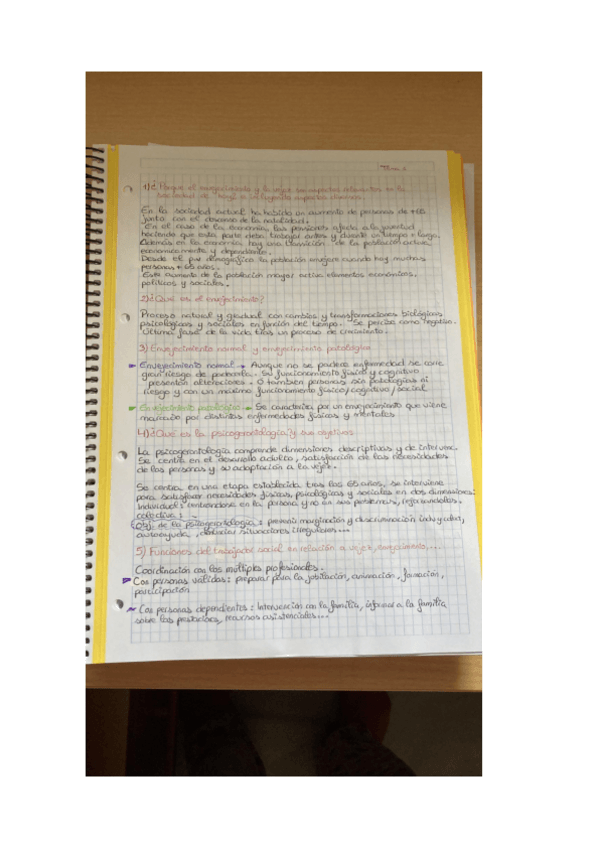 Tema 1
1) ¿Porque el envejecimiento y la vejez son aspectos relevantes en la
sociedad de hoy?
En la sociedad actual ha habido un aumento de personas de +65
junto con el descenso de la natalidad.
En el caso de la economía, las pensiones afecta a la juventud
haciendo que esta parte deba trabajar antes y durante un tiempo + largo.
Además en la economía hay una transición de la población activa
economicamente y dependiente.
Desde el pv demográfico la población envejece cuando hay muchas
personas + 65 años.
Este aumento de la población mayor activa elementos económicos,
políticos y sociales.
2) ¿Qué es el envejecimiento?
Proceso natural y gradual con cambios y transformaciones biológicas
psicológicas y sociales en función del tiempo. Se percibe como negativo.
Última fase de la vida tras un proceso de crecimiento.
3) Envejecimiento normal y envejecimiento patológico
Envejecimiento normal → Aunque no se padece enfermedad se corre
gran riesgo de padecerla. Su funcionamiento físico y cognitivo
presentan alteraciones. O también personas sin patologías ni
riesgo y con un máximo funcionamiento físico/cognitivo/social
Envejecimiento patológico → Se caracteriza por un envejecimiento que viene
marcado por distintas enfermedades físicas y mentales
4) ¿Qué es la psicogerontología y sus objetivos
La psicogerontología comprende dimensiones descriptivas y de interven.
Se centra en el desarrollo adulto, satisfacción de las necesidades
de las personas y su adaptación a la vejez.
Se centra en una etapa establecida tras los 65 años, se interviene
para satisfacer necesidades físicas, psicológicas y sociales en dos dimensiones:
Individual: centrandose en la persona y no en sus problemas, reforzandolas.
colectiva:
Obj. de la psicogerontología: prevenir marginación y discriminación indv y coltva,
autoayuda, situaciones irreguladas...
5) Funciones del trabajador social en relación a vejez, envejecimiento,...
Coordinación con los múltiples profesionales.
Con personas válidas: preparar para la jubilación, animación, formación,
participación
Con personas dependientes: Intervención con la familia, informar a la familia
sobre las prestacions, recursos asistenciales...